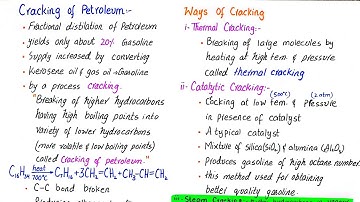 Cracking of Petroleum:-
• Fractional distillation of Petroleum
• yields only about 20% Gasoline
• Supply increased by converting
Kerosene oil & gas oil → Gasoline
by a process cracking.
"Breaking of higher hydrocarbons
having high boiling points into
Variety of lower hydrocarbons
(more volatile & low boiling points)
called Cracking of petroleum."
C16H34 heat 700°C → C7H16 + 3CH2=CH2 + CH3-CH=CH2
• C-C bond broken
Ways of Cracking
i- Thermal Cracking:-
• Breaking of large molecules by
heating at high tem. & pressure
called thermal cracking
ii- Catalytic Cracking:- (500°C) (2atm)
• Cocking at low tem. & pressure
in presence of catalyst
• A typical catalyst
• Mixture of silica(SiO2) & alumina (Al2O3)
• Produces gasoline of high octane number
• this method used for obtaining
better quality gasoline.
iii- Steam Cracking:-